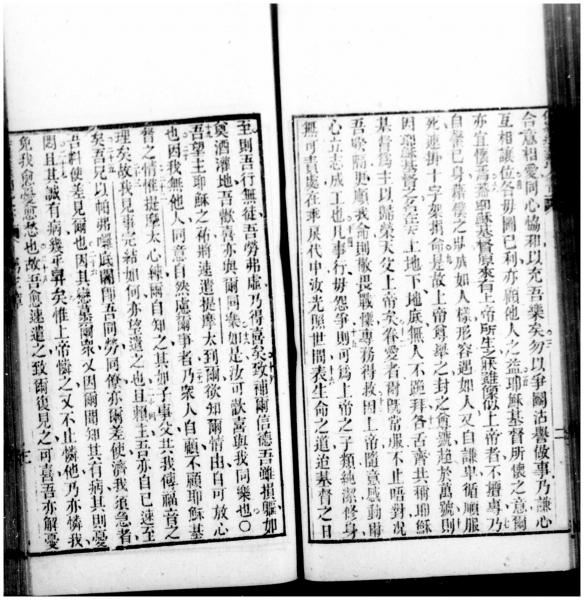 合意相愛同心恊和以充吾樂矣勿以爭鬪沽譽做事乃謙心
互相讓位各毋圖己利亦顧他人之益耶穌基督所懷之意爾
亦宜懷焉耶穌基督原來有上帝所生之狀雖像似上帝者不擅專乃
自謙己身藉僕之狀成如人樣形容遇如人又自謙卑循順服
死連掛十字架捐命是故上帝尊舉之封之爵號超於萬號則
因耶穌之名在天上地下地底無人不跪拜各舌齊共稱耶穌
基督爲主以歸榮天父上帝矣眷愛者爾既常服不止晤對况
吾睽隔更順我命則儆畏戰慄專務得救因上帝隨意感動爾
心立志成工也凡事行毋怨爭則可爲上帝之子類純潔修身
無可責處在乖戾代中如光照世間表生命之道迨基督之日
至則吾行無徒吾勞弗虛乃得喜矣致補爾信德吾雖損軀如
奠酒灌地吾歡喜亦與爾同樂如是汝可歡喜與我同樂也〇
吾望主耶穌之祐將速遣提摩太到爾欲知爾情由自可放心
也因我無他人同意自然慮爾事者乃衆人自顧不顧耶穌基
督之情惟提摩太心練爾自知之其如子事父共我傳福音之
理矣故我見事完結如何亦望遣之也且賴主吾亦自已速至
矣吾兄以帕弗囉底吾同勞同僚亦爾差使濟我須急者
吾料使差見爾也因其戀慕爾衆又因爾聞知其有病其則憂
悶且其誠有病幾乎昇矣惟上帝憐之又不止憐他乃亦憐我
免我愈憂愈愁也故吾愈速遣之致爾復見之可喜吾亦解憂